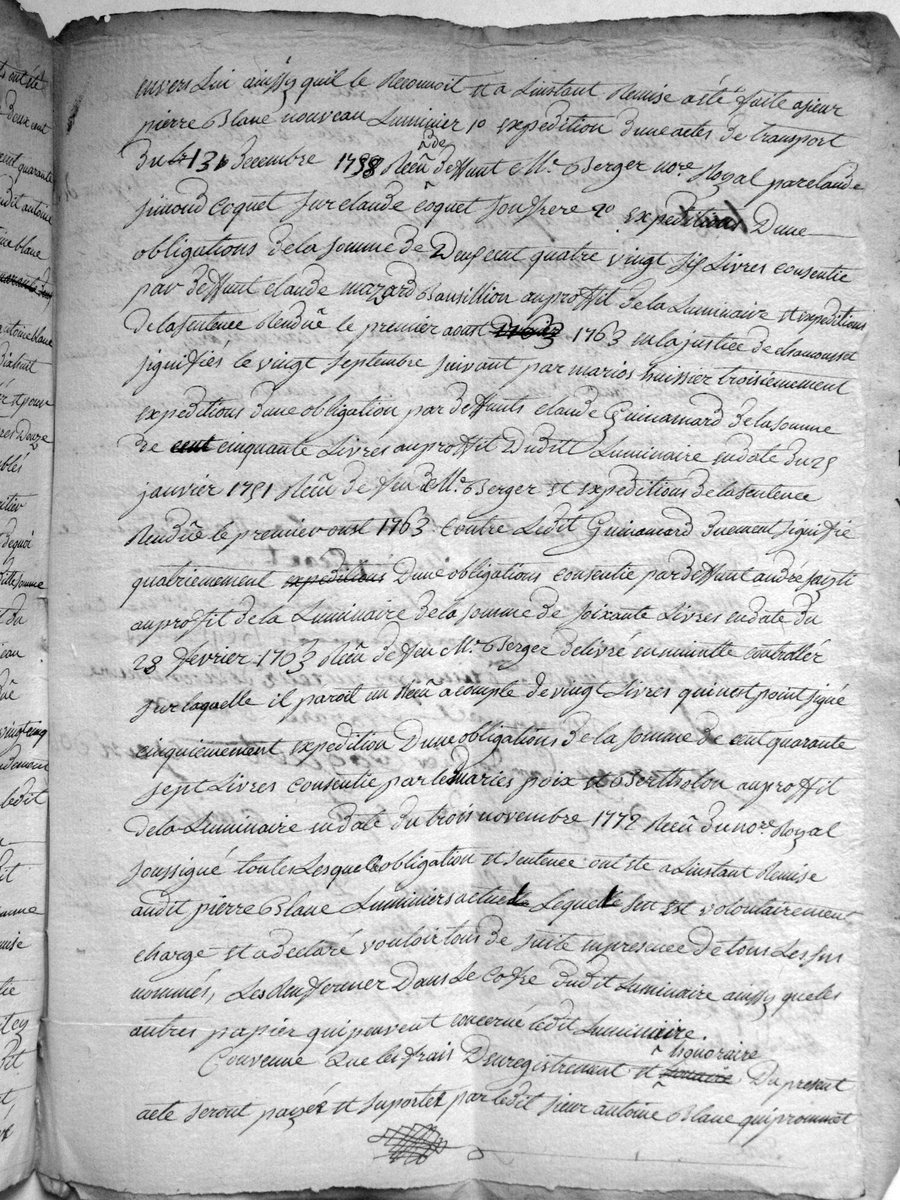 envers Lui ainssy quil le Reconnoit et a Linstant Remise a été faite a sieur
pierre Blanc nouveau Luminier 1º expedition dune actes de transport
du 31 Decembre 1758 Reçû de deffunt Me. Berger nore. Royal par claude
simond Coquet sur claude coquet son frere 2º expeditions Dune
obligations de la somme de Deux cent quatre vingt six Livres consentie
par deffunt claude mazard Bonsillion au proffit de la Luminaire et expeditions
de la sentence Rendûe le premier aoust 1763 en la justice de chamousset
signifiés le vingt septembre suivant par marios huissier troisiemement
expeditions dune obligation par deffunts claude Guinamard de la somme
de cent cinquante Livres au proffit Dudit Luminaire en date du 25
janvier 1751 Reçû de feu Me. Berger et expeditions de la sentence
Rendûe le premier oust 1763 Contre Ledit Guinamard duement signifié
quatriemement expeditions Dune obligations consentie par deffunt andré
au proffit de la Luminaire de la somme de soixante Livres en date du
28 fevrier 1763 Reçû de feu Me. Berger delivré en minutte controllée
sur laquelle il paroit un Reçû a compte de vingt Livres qui nest point signé
cinquiemement expedition Dune obligations de la somme de cent quarante
sept Livres consentie par les maries poix et Bertholon au proffit
de la Luminaire en date du trois novembre 1772 Reçû du nore. Royal
soussigné toutes Lesquelle obligation et sentence ont ete a Linstant Remise
audit pierre Blanc Luminiers actuel Lequel sen est volontairement
chargé et a declaré vouloir tous de suite en presence de tous Les sus
nommés, Les Renfermer Dans Le Cofre dudit Luminaire ainssy que les
autres papier qui peuvent concerné ledit Luminaire.
Convenue que les frais Denregistrement et honoraire Du present
acte seront payés et suportes par ledit sieur antoine Blanc qui promet